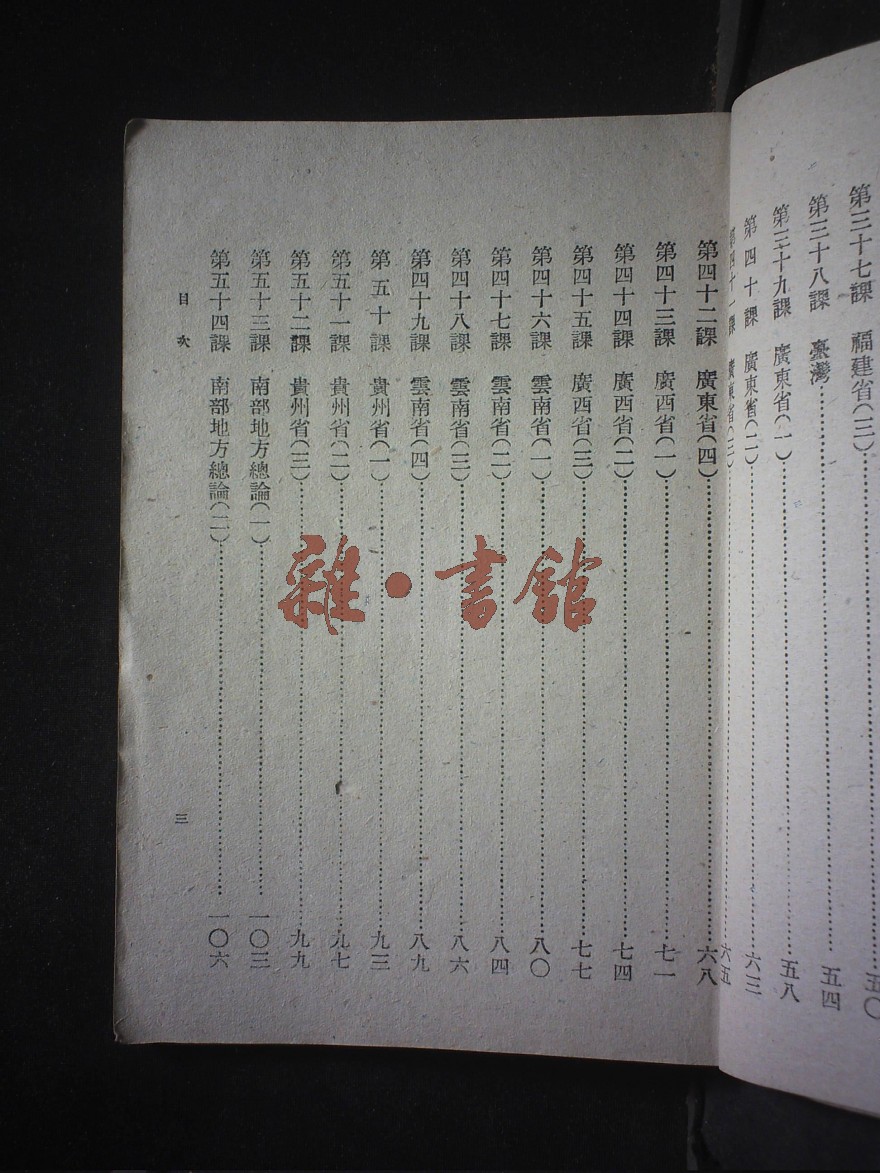 第三十七課　福建省(三)……五〇
第三十八課　臺灣……五四
第三十九課　廣東省(一)……五八
第四十課　廣東省(二)……六三
第四十一課　廣東省(三)……六五
第四十二課　廣東省(四)……六八
第四十三課　廣西省(一)……七一
第四十四課　廣西省(二)……七四
第四十五課　廣西省(三)……七七
第四十六課　雲南省(一)……八〇
第四十七課　雲南省(二)……八四
第四十八課　雲南省(三)……八六
第四十九課　雲南省(四)……八九
第五十課　貴州省(一)……九三
第五十一課　貴州省(二)……九七
第五十二課　貴州省(三)……九九
第五十三課　南部地方總論(一)……一〇三
第五十四課　南部地方總論(二)……一〇六
目次　三
雜·書館